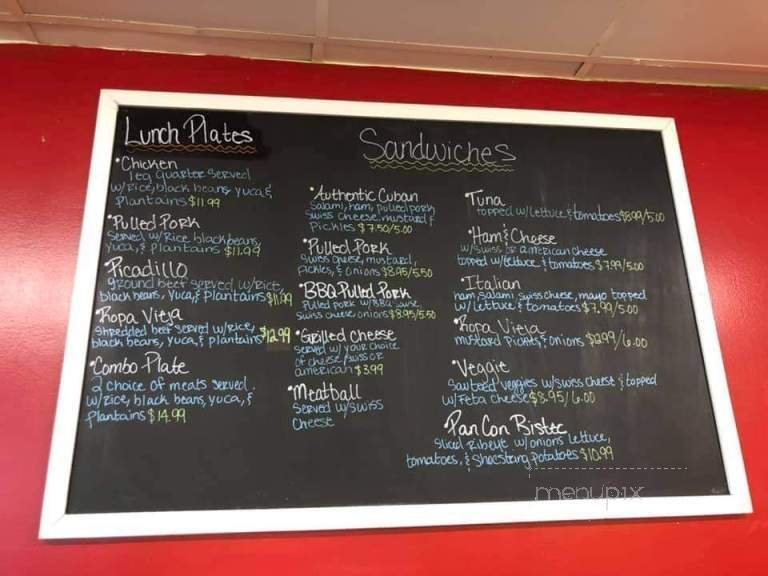 Lunch Plates
Chicken
leg quarter served
w/Rice, black beans yuca, &
plantains $11.99
Pulled Pork
Served w/Rice black beans,
yuca, & plantains $11.99
Picadillo
ground beef served w/rice,
black beans, yuca, & plantains $11.99
Ropa Vieja
Shredded beef served w/rice,
black beans, yuca, & plantains $12.99
Combo Plate
2 choice of meats served.
w/rice, black beans, yuca, &
plantains $14.99
Sandwiches
Authentic Cuban
Salami, ham, pulled pork
Swiss cheese, mustard &
Pickles $7.50/5.00
Pulled Pork
Swiss cheese, mustard,
pickles, & onions $8.95/5.50
BBQ Pulled Pork
Pulled pork w/BBQ sauce,
Swiss cheese, onions $8.95/5.50
Grilled Cheese
served w/ your choice
of cheese/swiss or
american $3.99
Meatball
Served w/Swiss
Cheese
Tuna
topped w/lettuce & tomatoes $8.99/5.00
Ham & Cheese
w/Swiss or American cheese
topped w/lettuce & tomatoes $7.99/5.00
Italian
ham, salami, swiss cheese, mayo topped
w/lettuce & tomatoes $7.99/5.00
Ropa Vieja
mustard Pickles & onions /6.00
Veggie
Sauteed veggies w/swiss cheese & topped
w/Feta cheese $8.95/6.00
Pan Con Bistec
Sliced Ribeye w/onions lettuce,
tomatoes, & Shoestring potatoes $10.99
menupix